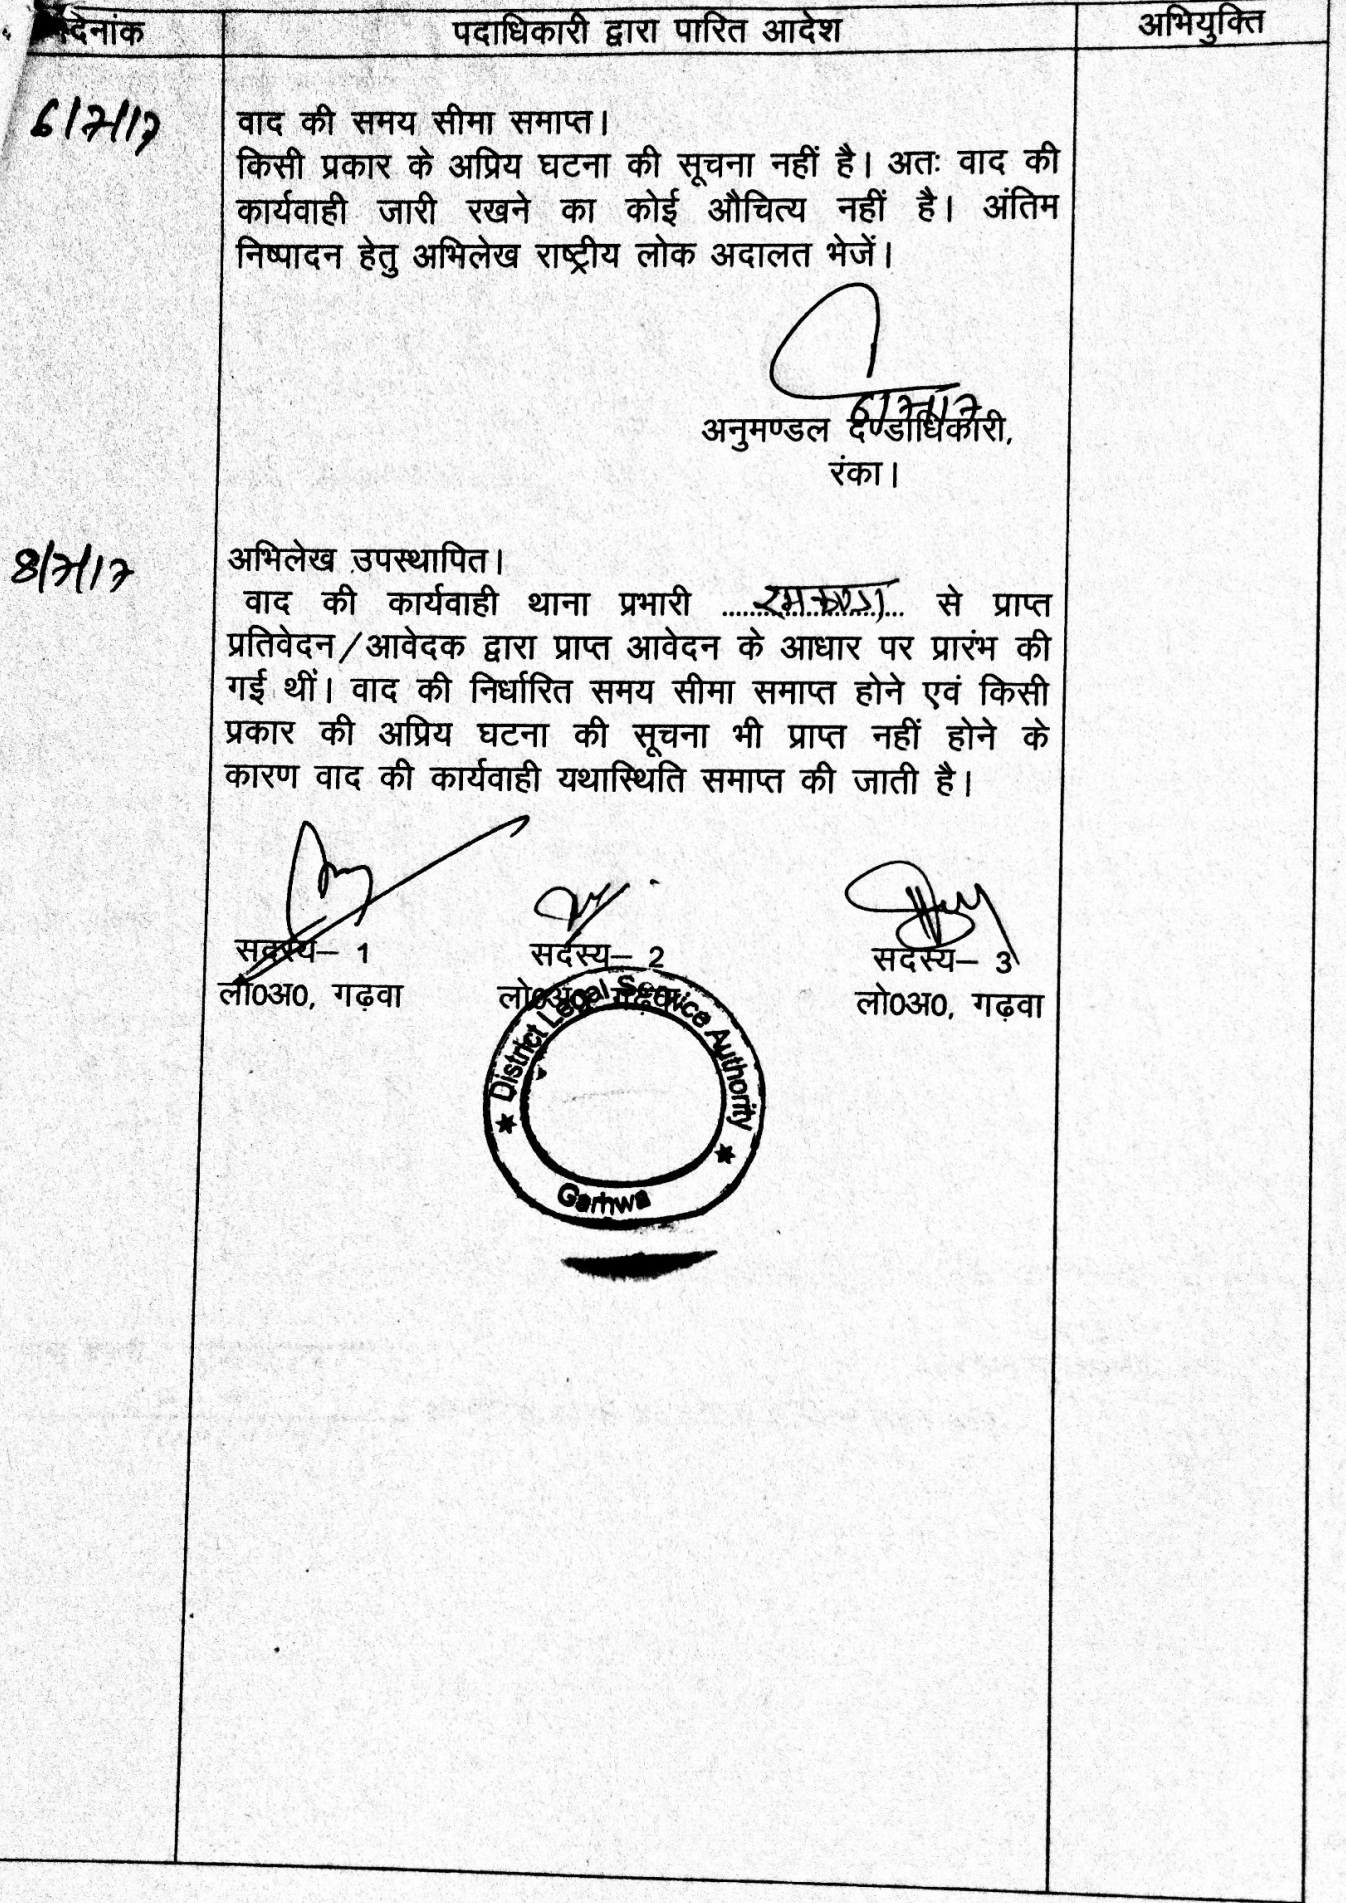 दिनांक पदाधिकारी द्वारा पारित आदेश अभियुक्ति
6/7/17 वाद की समय सीमा समाप्त।
किसी प्रकार के अप्रिय घटना की सूचना नहीं है। अतः वाद की
कार्यवाही जारी रखने का कोई औचित्य नहीं है। अंतिम
निष्पादन हेतु अभिलेख राष्ट्रीय लोक अदालत भेजें।
6/7/17
अनुमण्डल दण्डाधिकारी,
रंका।
8/7/17 अभिलेख उपस्थापित।
वाद की कार्यवाही थाना प्रभारी ....रमकण्डा.... से प्राप्त
प्रतिवेदन/आवेदक द्वारा प्राप्त आवेदन के आधार पर प्रारंभ की
गई थीं। वाद की निर्धारित समय सीमा समाप्त होने एवं किसी
प्रकार की अप्रिय घटना की सूचना भी प्राप्त नहीं होने के
कारण वाद की कार्यवाही यथास्थिति समाप्त की जाती है।
सदस्य– 1 सदस्य– 2 सदस्य– 3
लो0अ0, गढ़वा लो0अ0, गढ़वा लो0अ0, गढ़वा
District Legal Service Authority
Garhwa